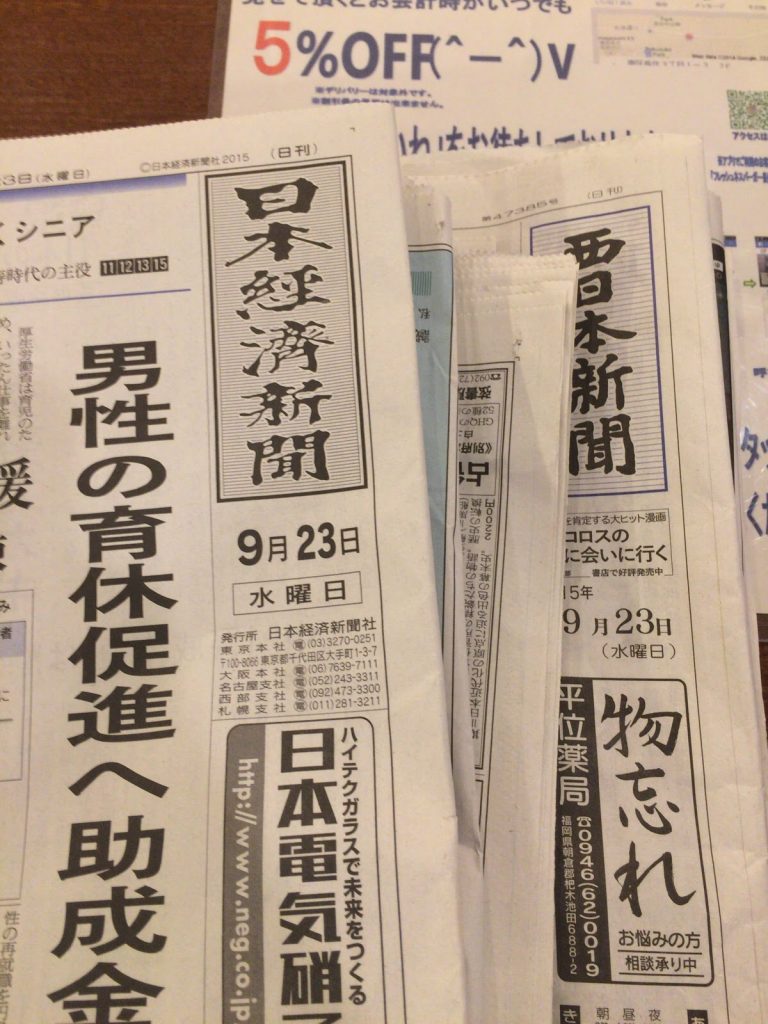 見せて頂くとお会計時がいつでも
5%OFF(^－^)V
※デリバリーは対象外です。
アクセスは
3日(水曜日)
©日本経済新聞社2015
(日刊)
日本経済新聞
シニア
時代の主役 11 12 13 15
男性の育休促進へ助成金
9月23日
水曜日
発行所 日本経済新聞社
東京本社 電(03)3270-0251
〒100-8066 東京都千代田区大手町1-3-7
大阪本社 電(06)7639-7111
名古屋支社 電(052)243-3311
西部支社 電(092)473-3300
札幌支社 電(011)281-3211
ハイテクガラスで未来をつくる
日本電気硝子
http://www.neg.co.jp
厚生労働省は育児のた
性の再就職を
第47385号
(日刊)
西日本新聞
を肯定する大ヒット漫画
コロスの
に会いに行く
書店で好評発売中
15年
9月23日
(水曜日)
物忘れ
お悩みの方
相談承り中
平位薬局
☎0946(62)0019
福岡県朝倉郡杷木池田688-2
朝 昼 夜
☎092(72
2200円